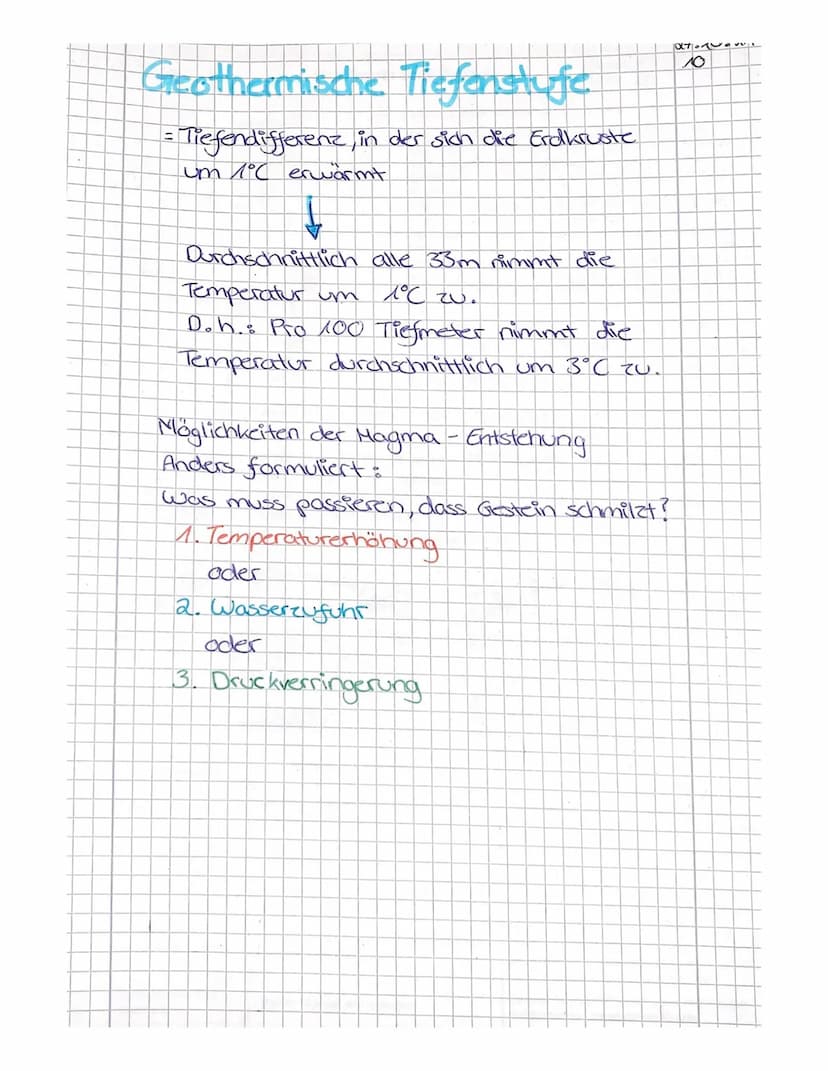 10
Geothermische Tiefenstufe
= Tiefendifferenz, in der sich die Erdkruste
um 1°C erwärmt
Durchschnittlich alle 33m nimmt die
Temperatur um 1°C zu.
D.h.: Pro 100 Tiefmeter nimmt die
Temperatur durchschnittlich um 3°C zu.
Möglichkeiten der Magma - Entstehung
Anders formuliert:
Was muss passieren, dass Gestein schmilzt?
1. Temperaturerhöhung
oder
2. Wasserzufuhr
oder
3. Druckverringerung